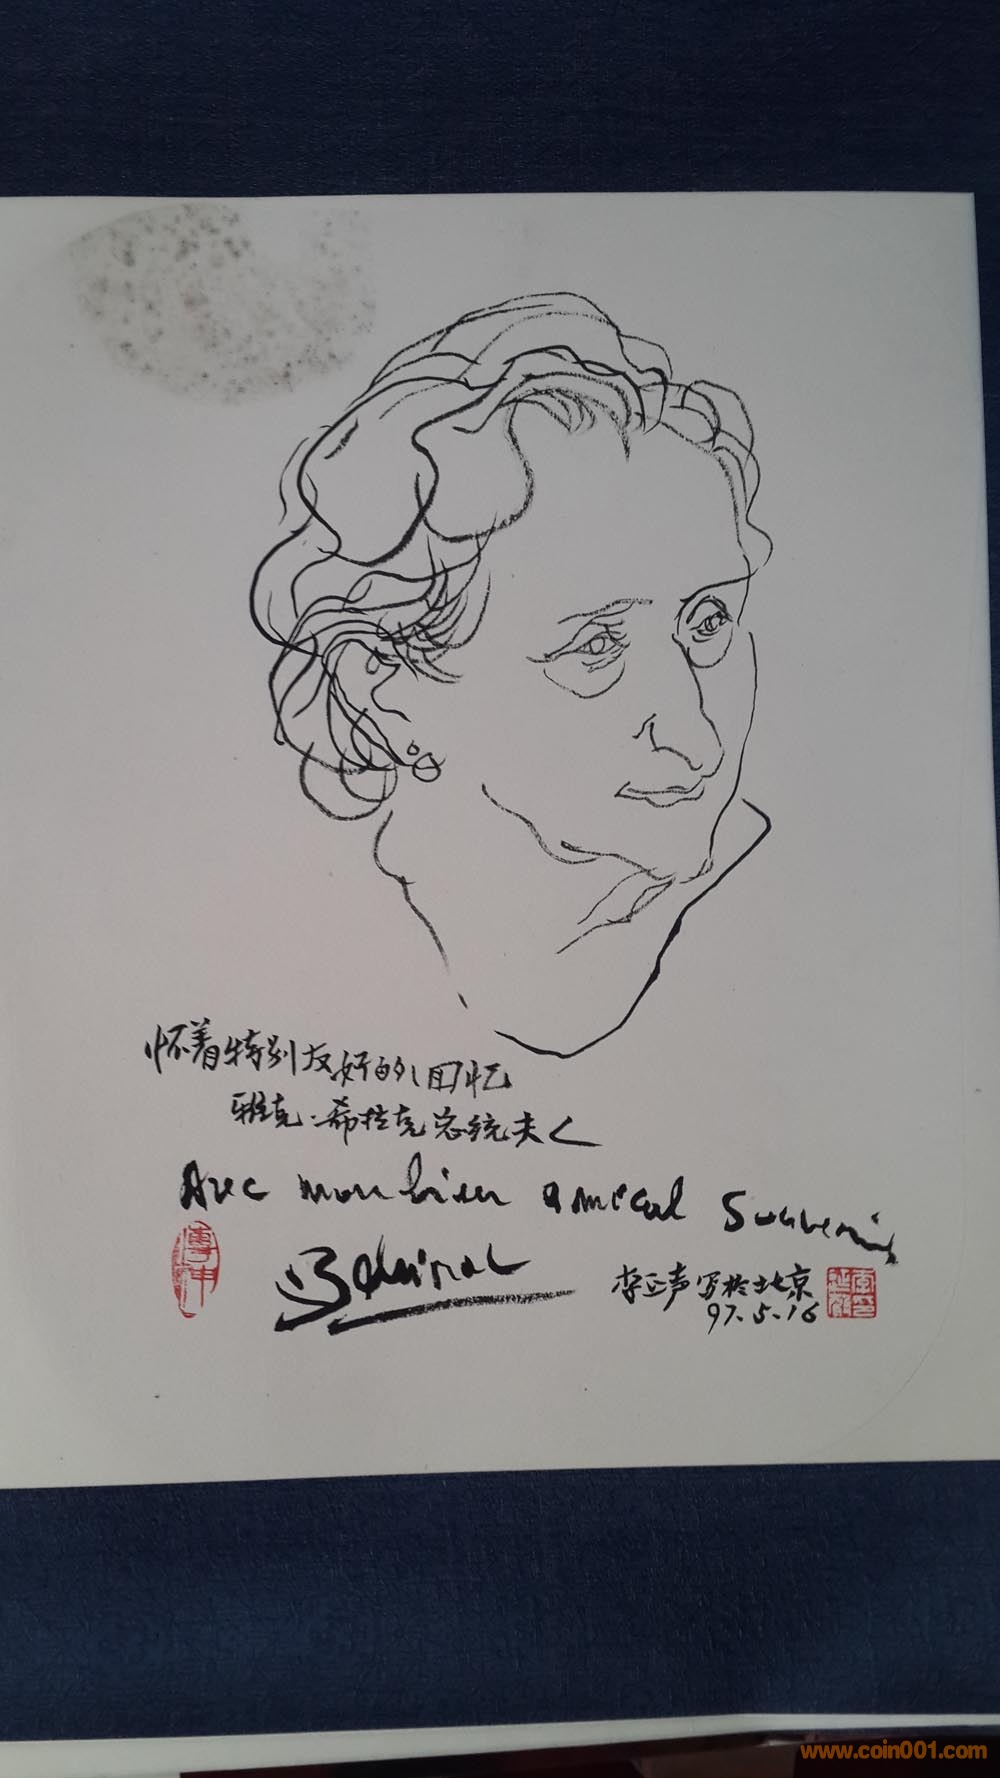 怀着特别友好的回忆
雅克·希拉克总统夫人
Avec mon bien amical Souvenir
BChirac
李正声写于北京
97.5.16
www.coin001.com